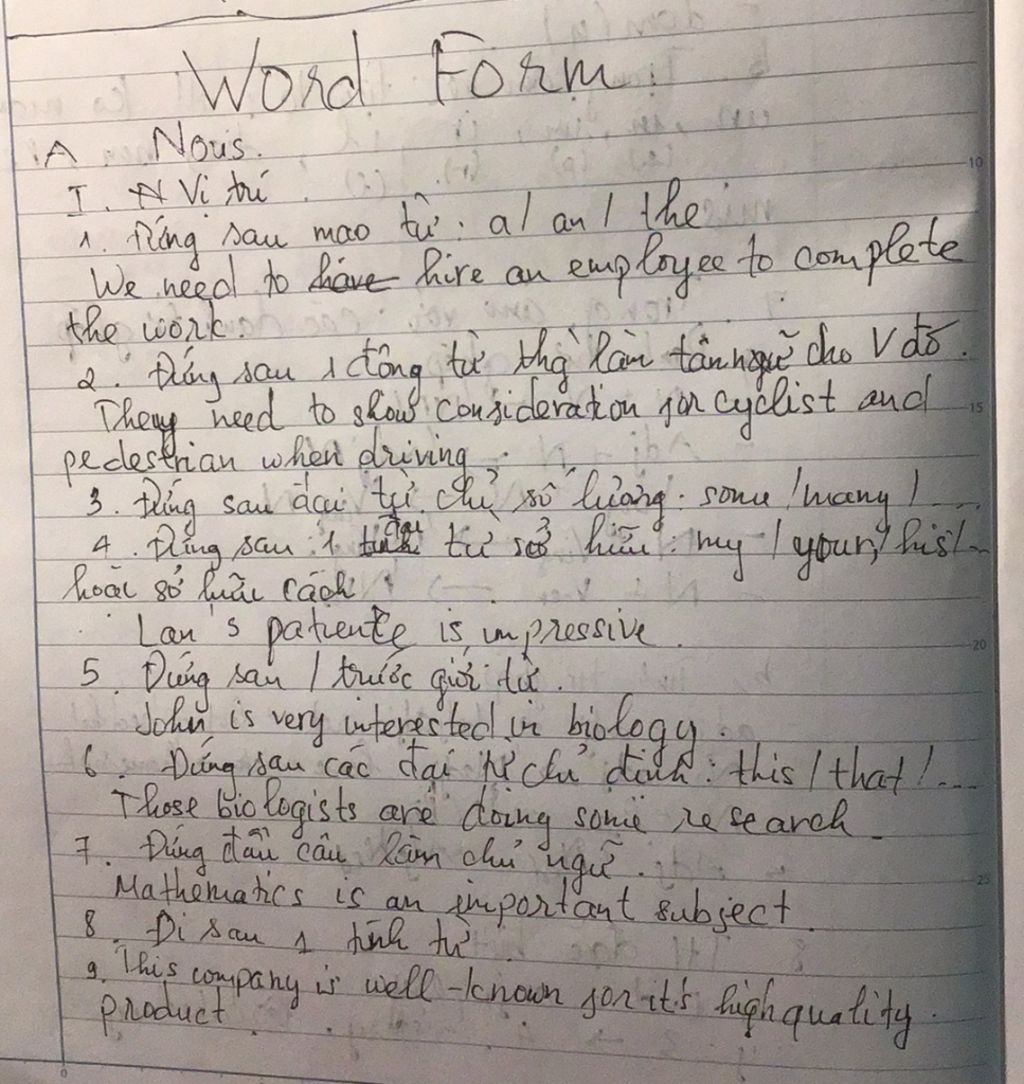 Word Form.
A Nous.
I. N Vị trí
1. Đứng sau mao từ: a/ an / the
We need to have hire an employee to complete
the work.
2. Đứng sau 1 động từ thg làm tân ngữ cho V đó.
They need to show consideration for cyclist and
pedestrian when driving.
3. Đứng sau đại từ chỉ số lượng: some / many / ...
4. Đứng sau 1 tính đại từ sở hữu: my / your / his / ...
hoặc sở hữu cách
Lan's patiente is impressive.
5. Đứng sau / trước giới từ.
John is very interested in biology.
6. Đứng sau các đại từ chỉ định: this / that / ...
Those biologists are doing some research.
7. Đứng đầu câu làm chủ ngữ.
Mathematics is an important subject.
8. Đi sau 1 tính từ.
9. This company is well-known for it's high quality
product.